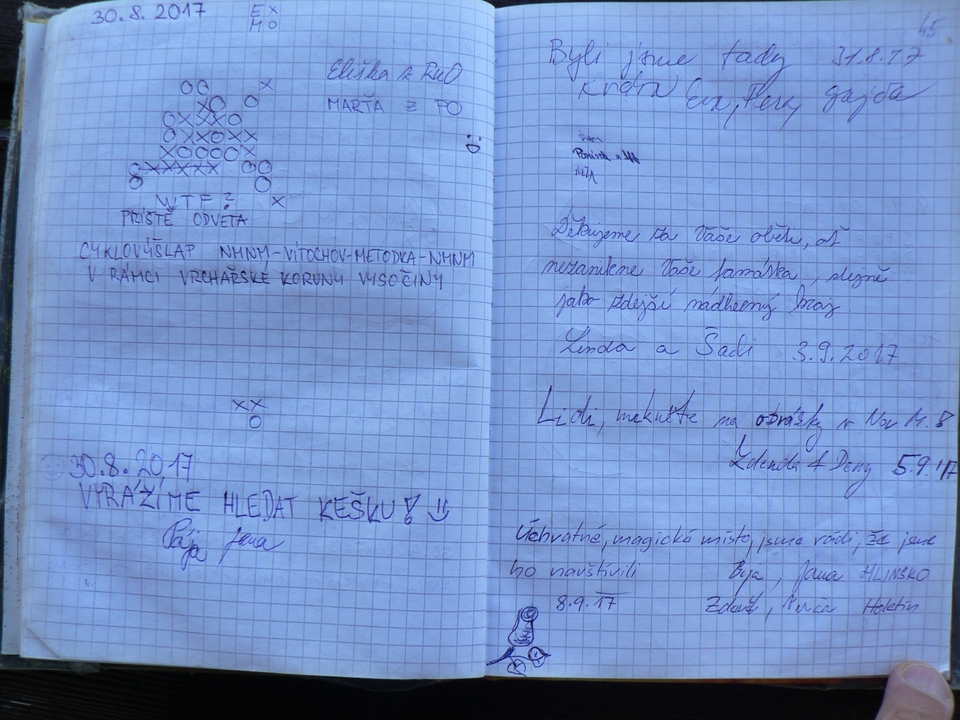 30.8.2017
EX
MO
Eliška z RnO
MARŤA Z PO
OO X
XO O
OXXXO
OXXOXX
XOOOOX
O XXXXX OO
O O
WTF? X
PŘÍŠTĚ ODVETA
CYKLOVÝŠLAP NMNM-VÍTOCHOV-METODKA-NMNM
V RÁMCI VRCHAŘSKÉ KORUNY VYSOČINY
XX
O
30.8.2017
VYRÁŽÍME HLEDAT KEŠKU!
Pája Jana
45
Byli jsme tady 31.8.17
Gajda
Děkujeme za Vaše oběti, ať
nezanikne Vaše památka, stejně
jako zdejší nádherný kraj
Linda a Sadi 3.9.2017
Lidi, mekněte na obrázky v Nov M. 8
Zdenda & Deny 5.9.17
Úchvatné, magické místo, jsme rádi, že jsme
ho navštívili Jana HLINSKO
8.9.17 Holetín